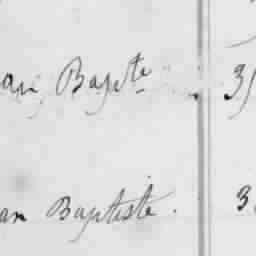 an Bapte 3
an Baptiste. 3